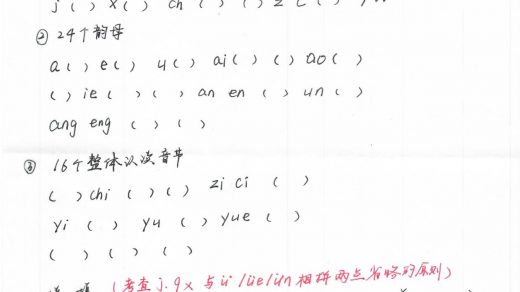 j ( ) x ( ) ch ( ) ( ) z c ( ) y w
② 24个韵母
a ( ) e ( ) u ( ) ai ( ) ( ) ao ( )
( ) ie ( ) ( ) an en ( ) un ( )
ang eng ( ) ( )
③ 16个整体认读音节
( ) chi ( ) ( ) zi ci ( )
yi ( ) yu ( ) yue ( )
( ) ( ) ( )
(考查j.q x 与ü/üe/ün相拼两点省略的原则)